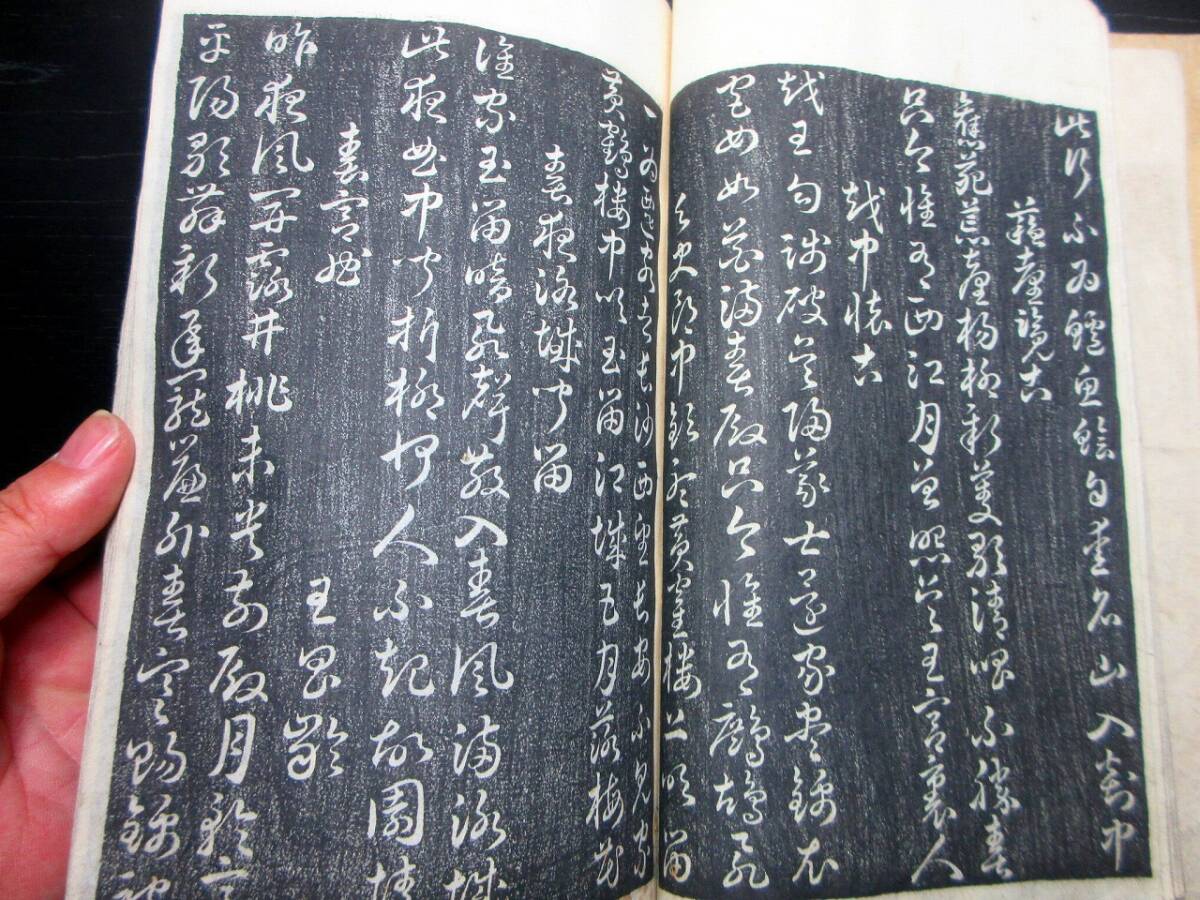 此行不為鱸魚鱠自愛名山入剡中
蘇臺覽古
舊苑荒臺楊柳新菱歌清唱不勝春
只今惟有西江月曾照吳王宮裏人
越中懷古
越王勾踐破吳歸義士還家盡錦衣
宮女如花滿春殿只今惟有鷓鴣飛
與史郎中欽聽黃鶴樓上吹笛
一為遷客去長沙西望長安不見家
黃鶴樓中吹玉笛江城五月落梅花
春夜洛城聞笛
誰家玉笛暗飛聲散入春風滿洛城
此夜曲中聞折柳何人不起故園情
春宮曲
王昌齡
昨夜風開露井桃未央前殿月輪高
平陽歌舞新承寵簾外春寒賜錦袍